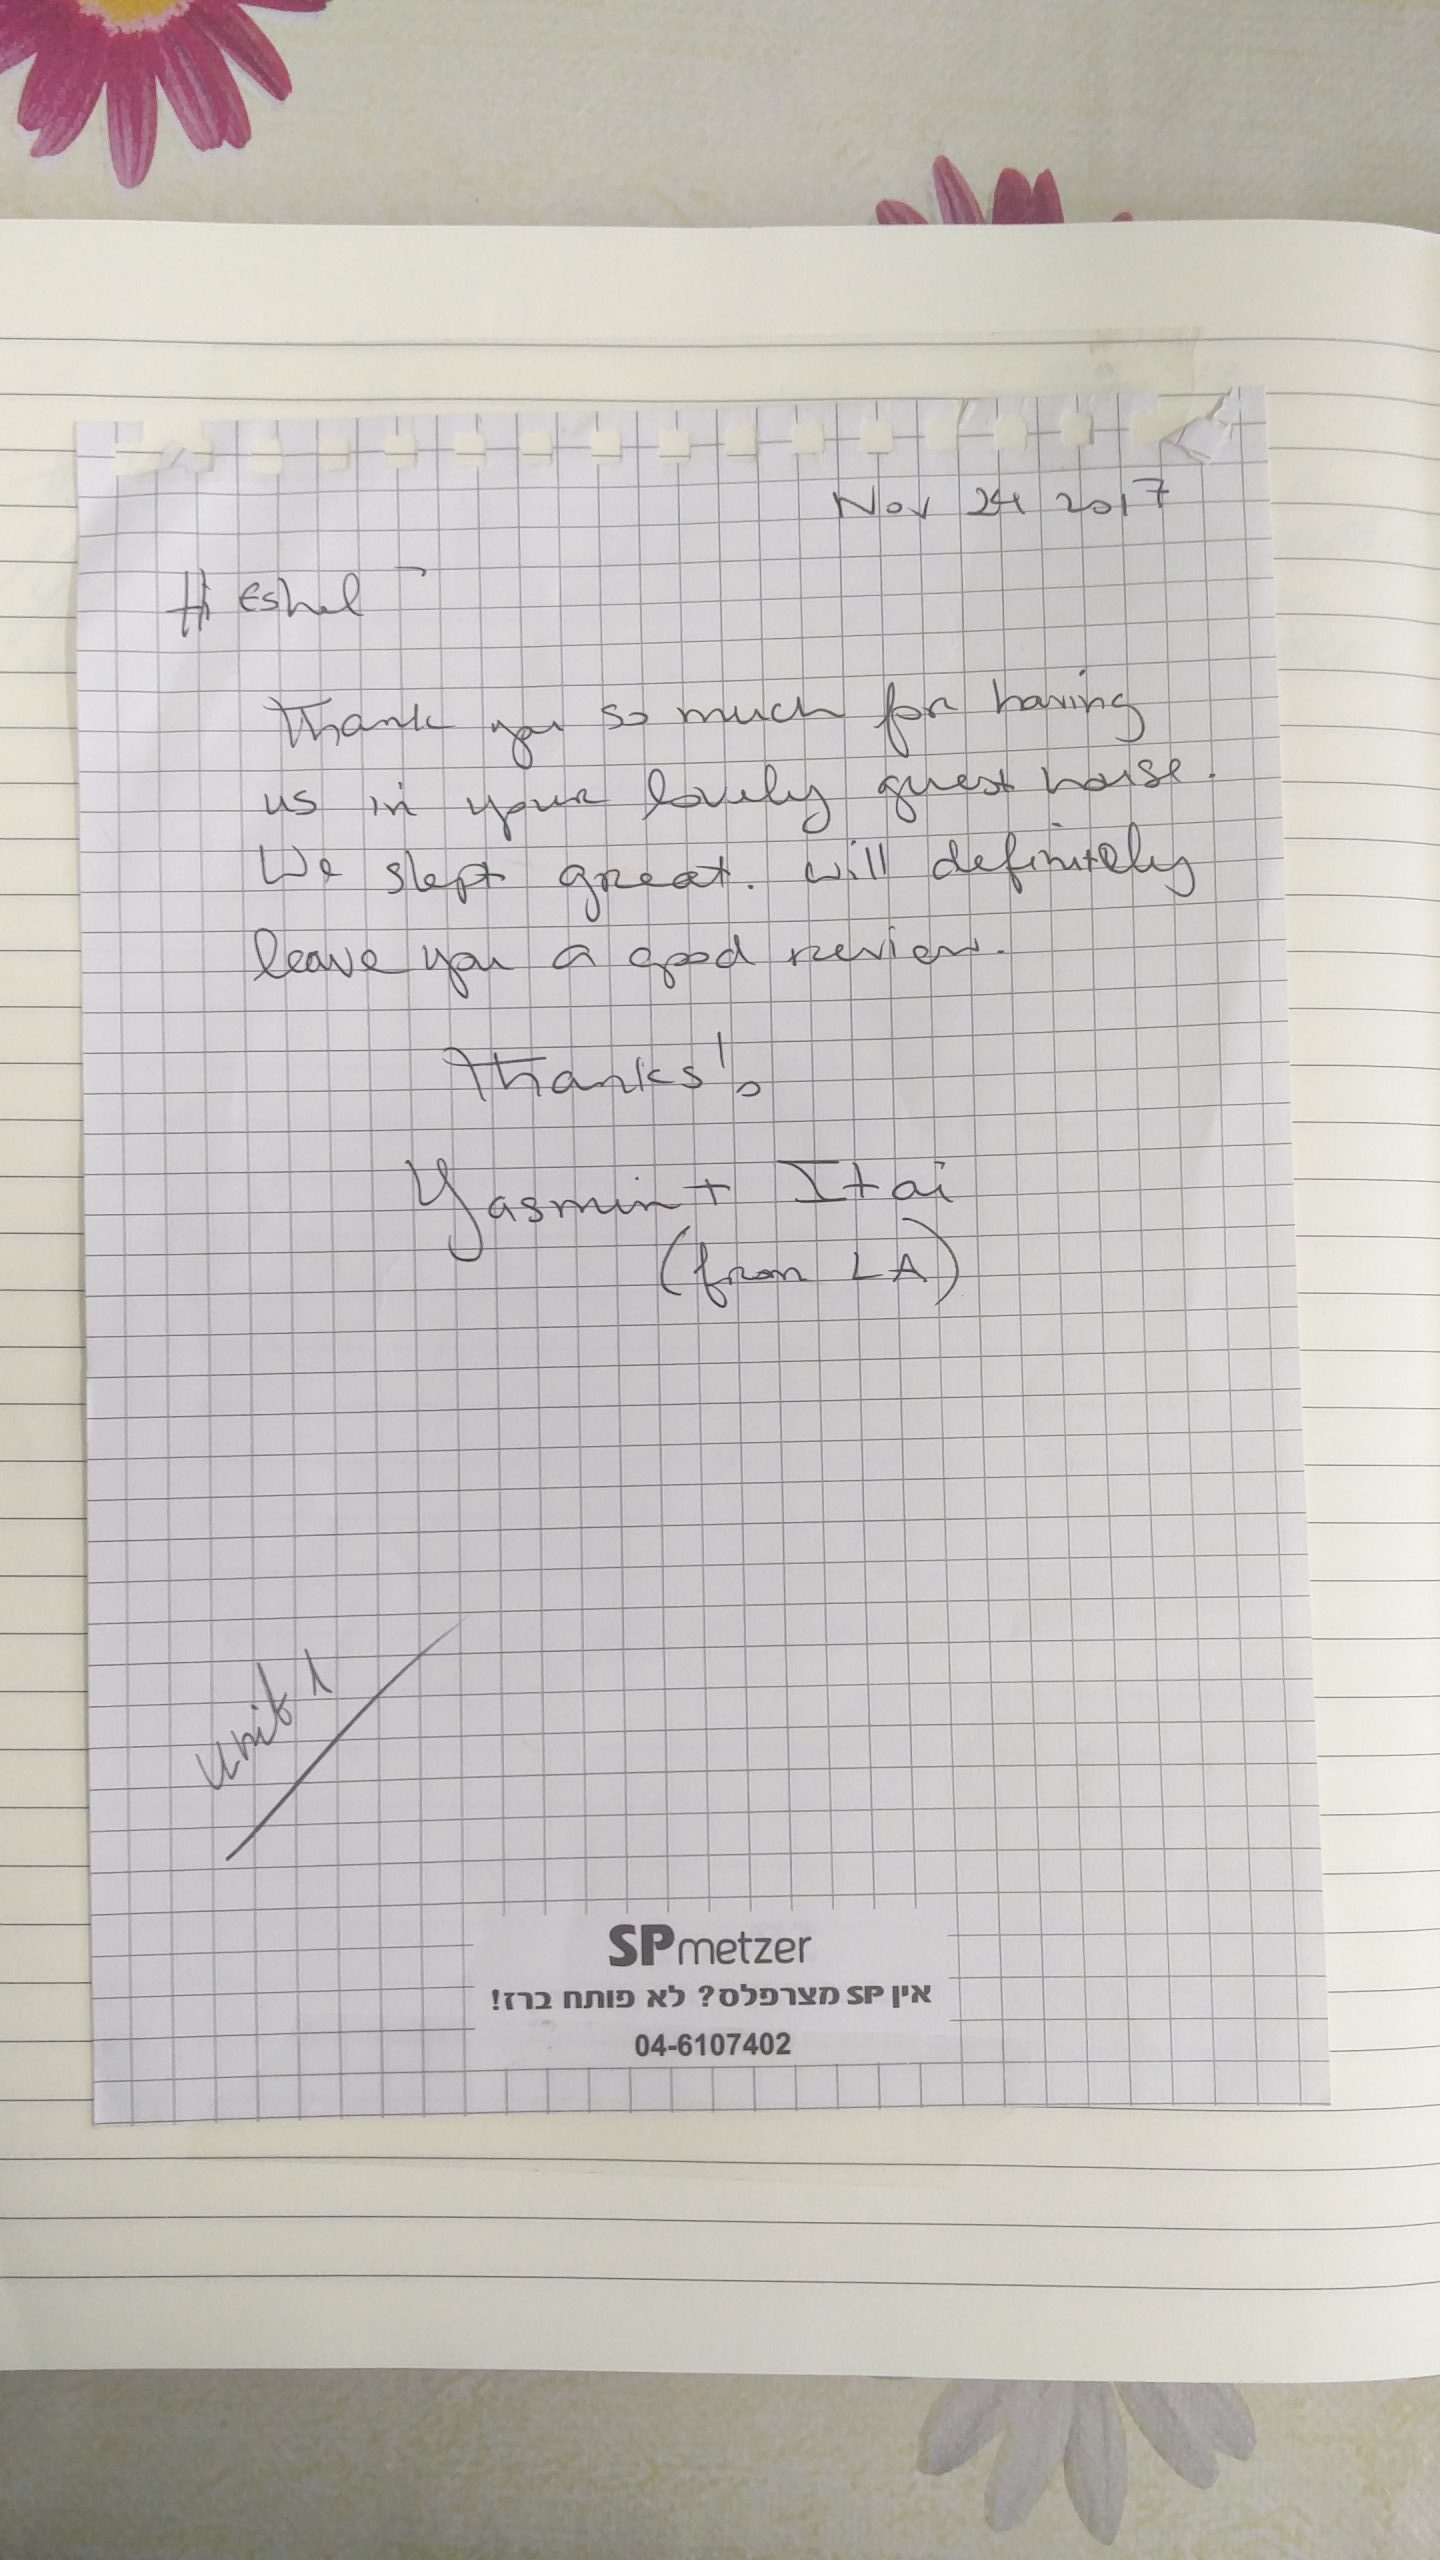 Nov 24 2017
Hi Eshel -
Thank you so much for having
us in your lovely guest house.
We slept great. will definitely
leave you a good review.
Thanks!
Yasmin + Itai
(from LA)
unit 1
SP metzer
אין SP מצרפלס? לא פותח ברז!
04-6107402